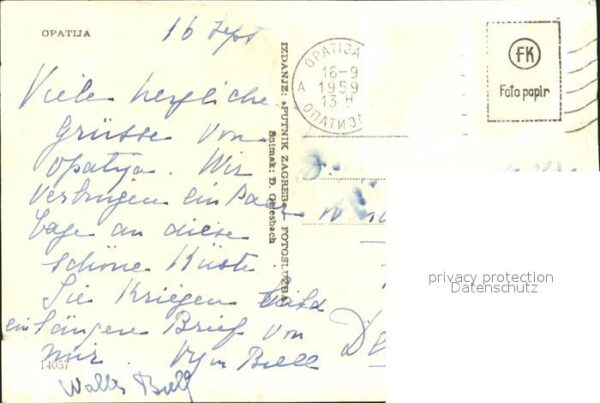 OPATIJA
16 Sept
Viele herzliche
Grüsse von
Opatija. Wir
verbringen ein Paar
Tage an diese
schöne Küste.
Sie Kriegen bald
ein längere Brief von
mir.
Buell
14057
IZDANJE: »PUTNIK ZAGREB« — FOTOSLUŽBA
Snimak: D. Griesbach
OPATIJA
16-9
A 1959
13 H
ОПАТИЈА
FK
Foto papir
privacy protection
Datenschutz